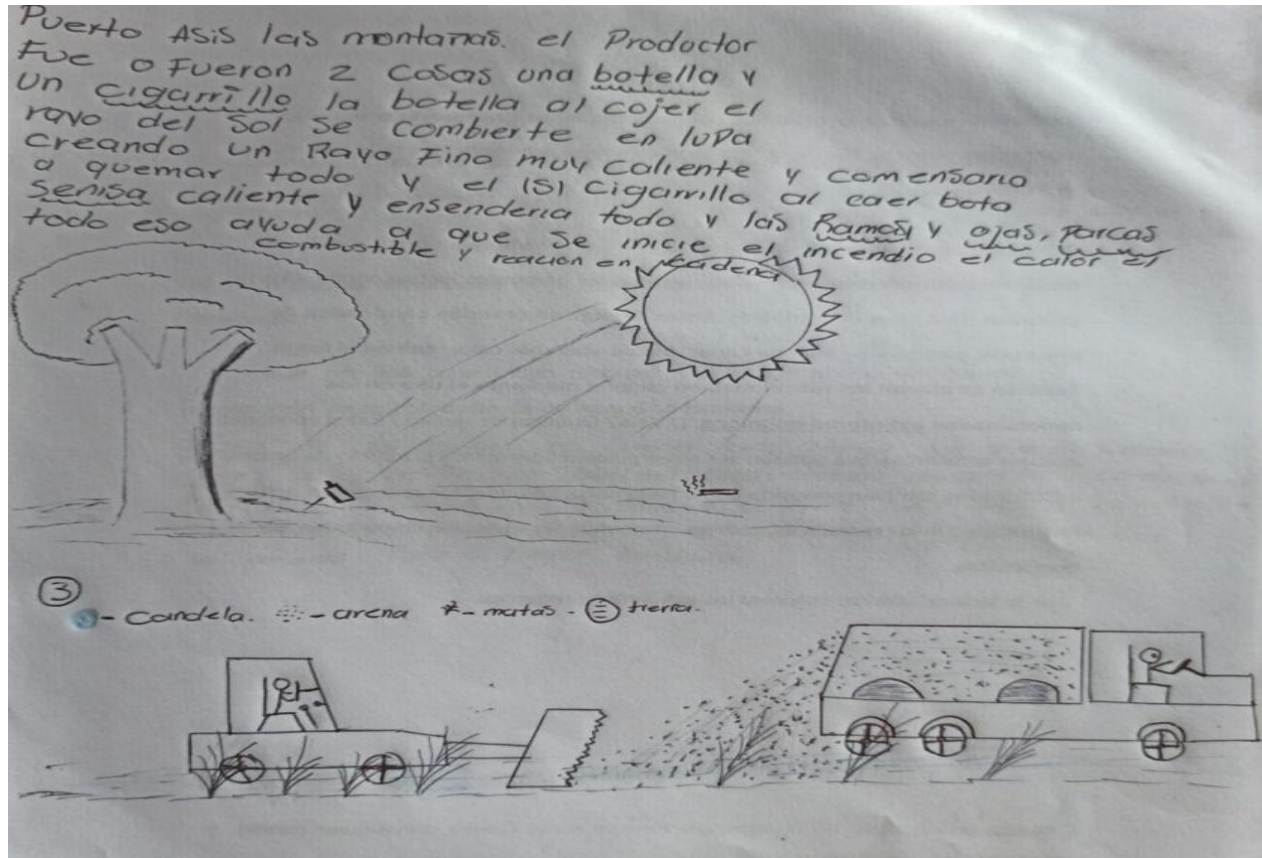 Puerto Asis las montañas. el Productor
Fue o Fueron 2 cosas una botella y
un cigarrillo la botella al cojer el
rayo del sol se combierte en lupa
creando un Rayo Fino muy caliente y comensario
a quemar todo y el (s) cigarrillo al caer bota
senisa caliente y ensenderia todo y las Ramas y ojas, parcas
todo eso ayuda a que se inicie el incendio el calor el
combustible y reacion en cadena
③
- Candela. - arena *- matas - tierra.